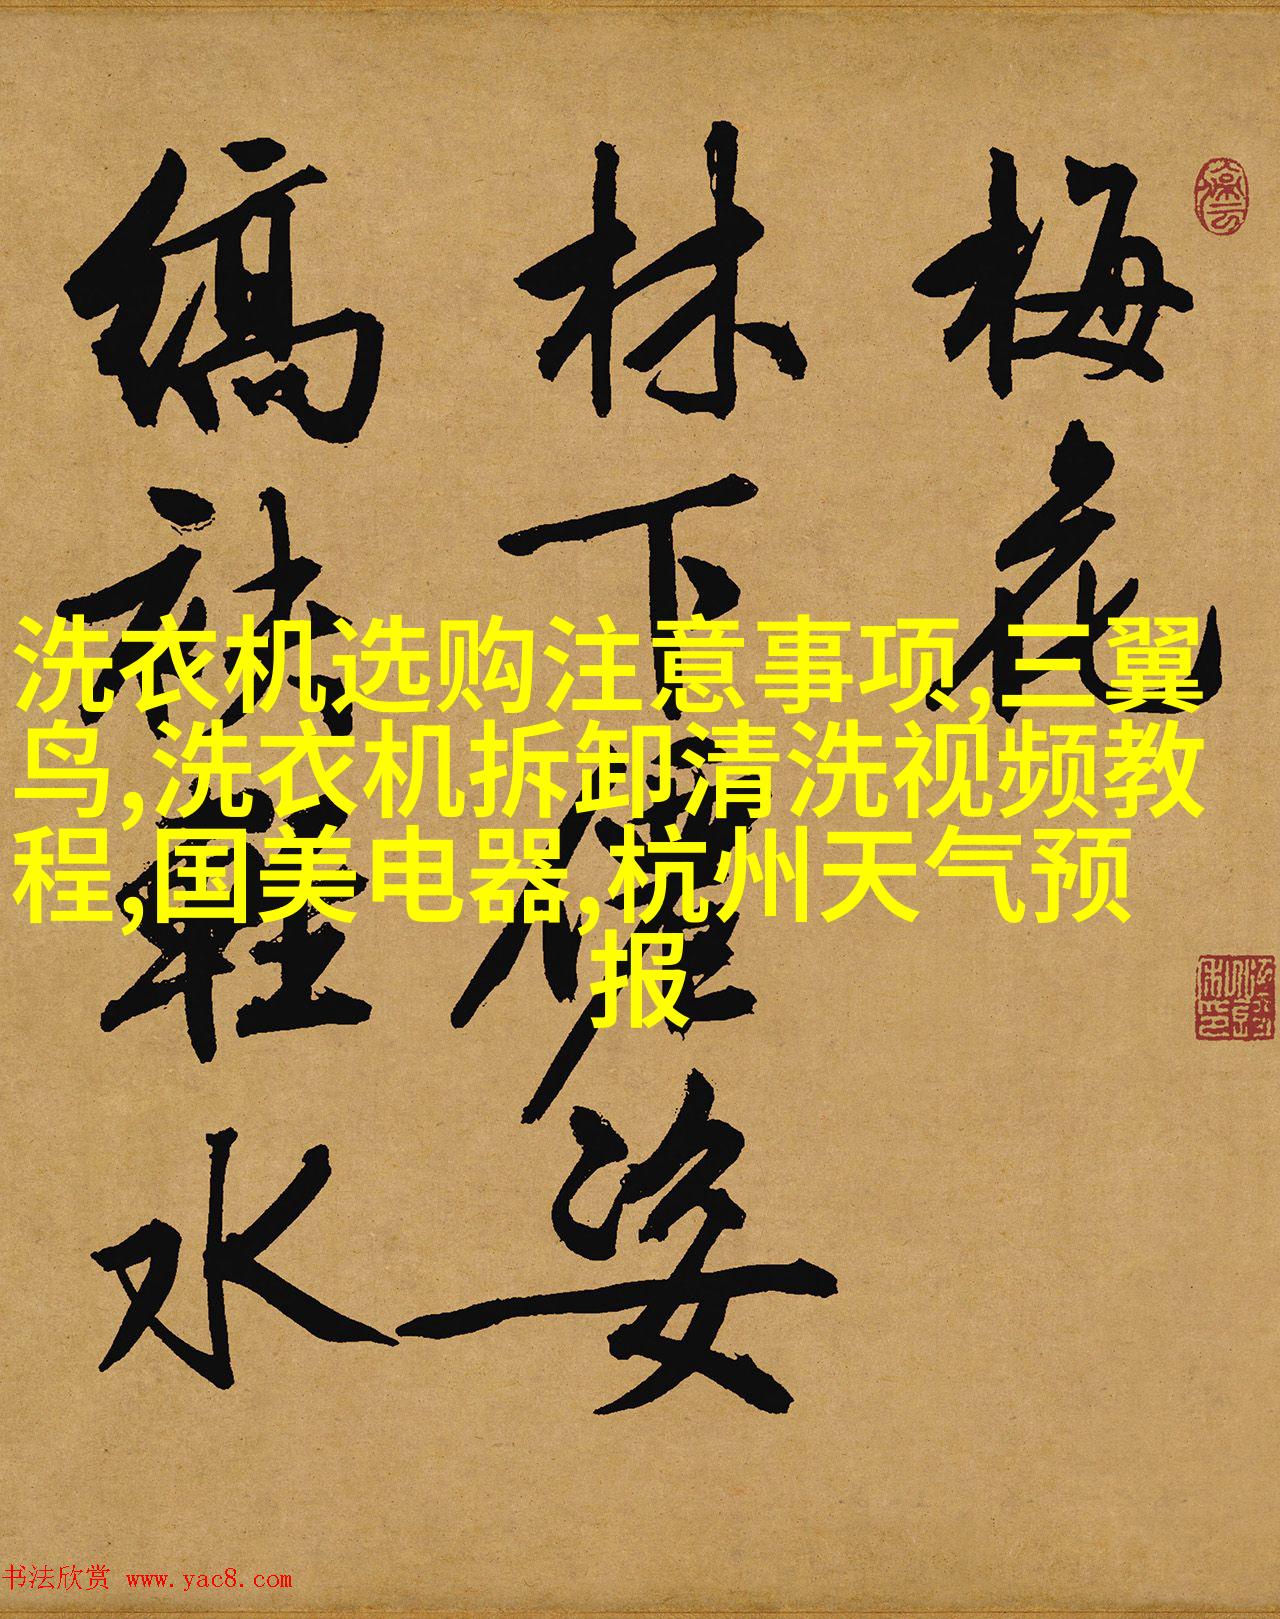 梅花
林下仙姿
缟袂轻水
洗衣机选购注意事项,三翼
鸟,洗衣机拆卸清洗视频教
程,国美电器,杭州天气预
报
书法欣赏 www.yac8.com